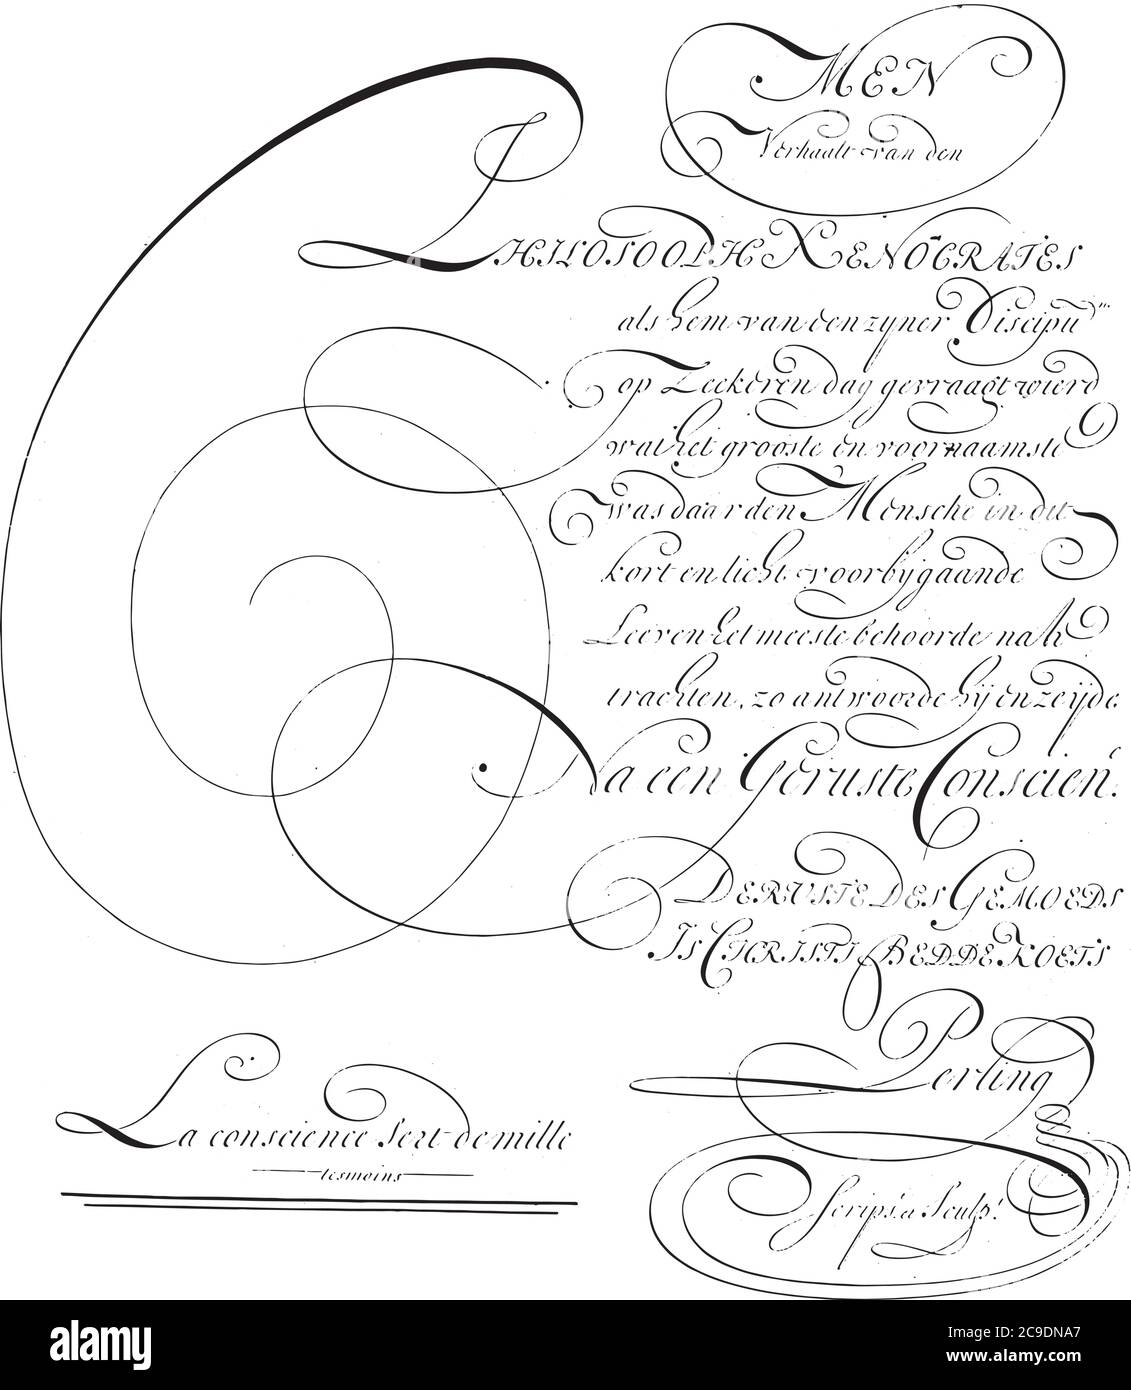 MEN
Verhaalt van den
PHILOSOOPH XENOCRATES
als hem van een zyner Discipu
op Zeekeren dag gevraagt wierd
wat het grooste en voornaamste
was daar den Mensche in dit
kort en licht voorbygaande
Leeven het meeste behoorde nah
trachten, zo antwoorde hij en zeijde
Na een Geruste Conscien.
DE RUSTE DES GEMOEDS
IS CHRISTI BEDDE KOETS
Perling
Scrips. a Sculp.
La conscience Sert de mille
tesmoins
alamy
Image ID: 2C9DNA7
www.alamy.com